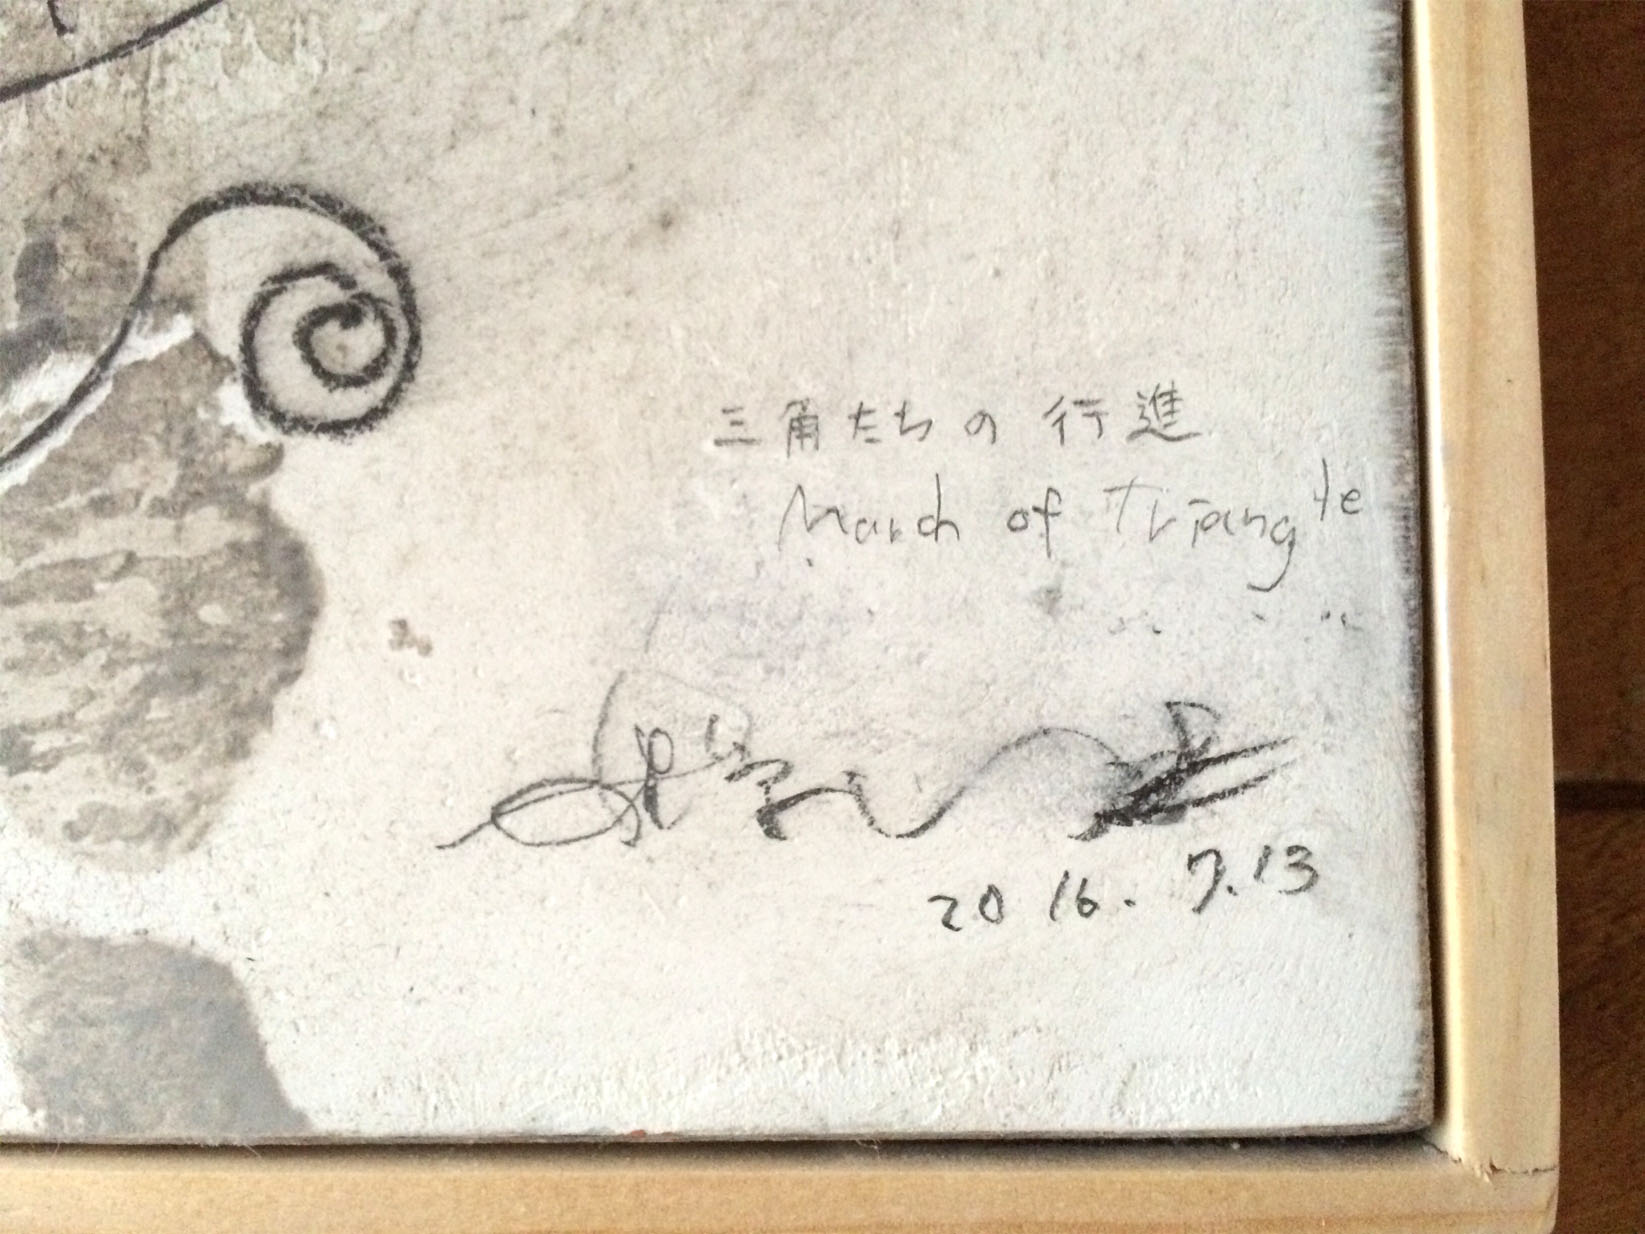 三角たちの行進
March of Triangle
2016. 7.13